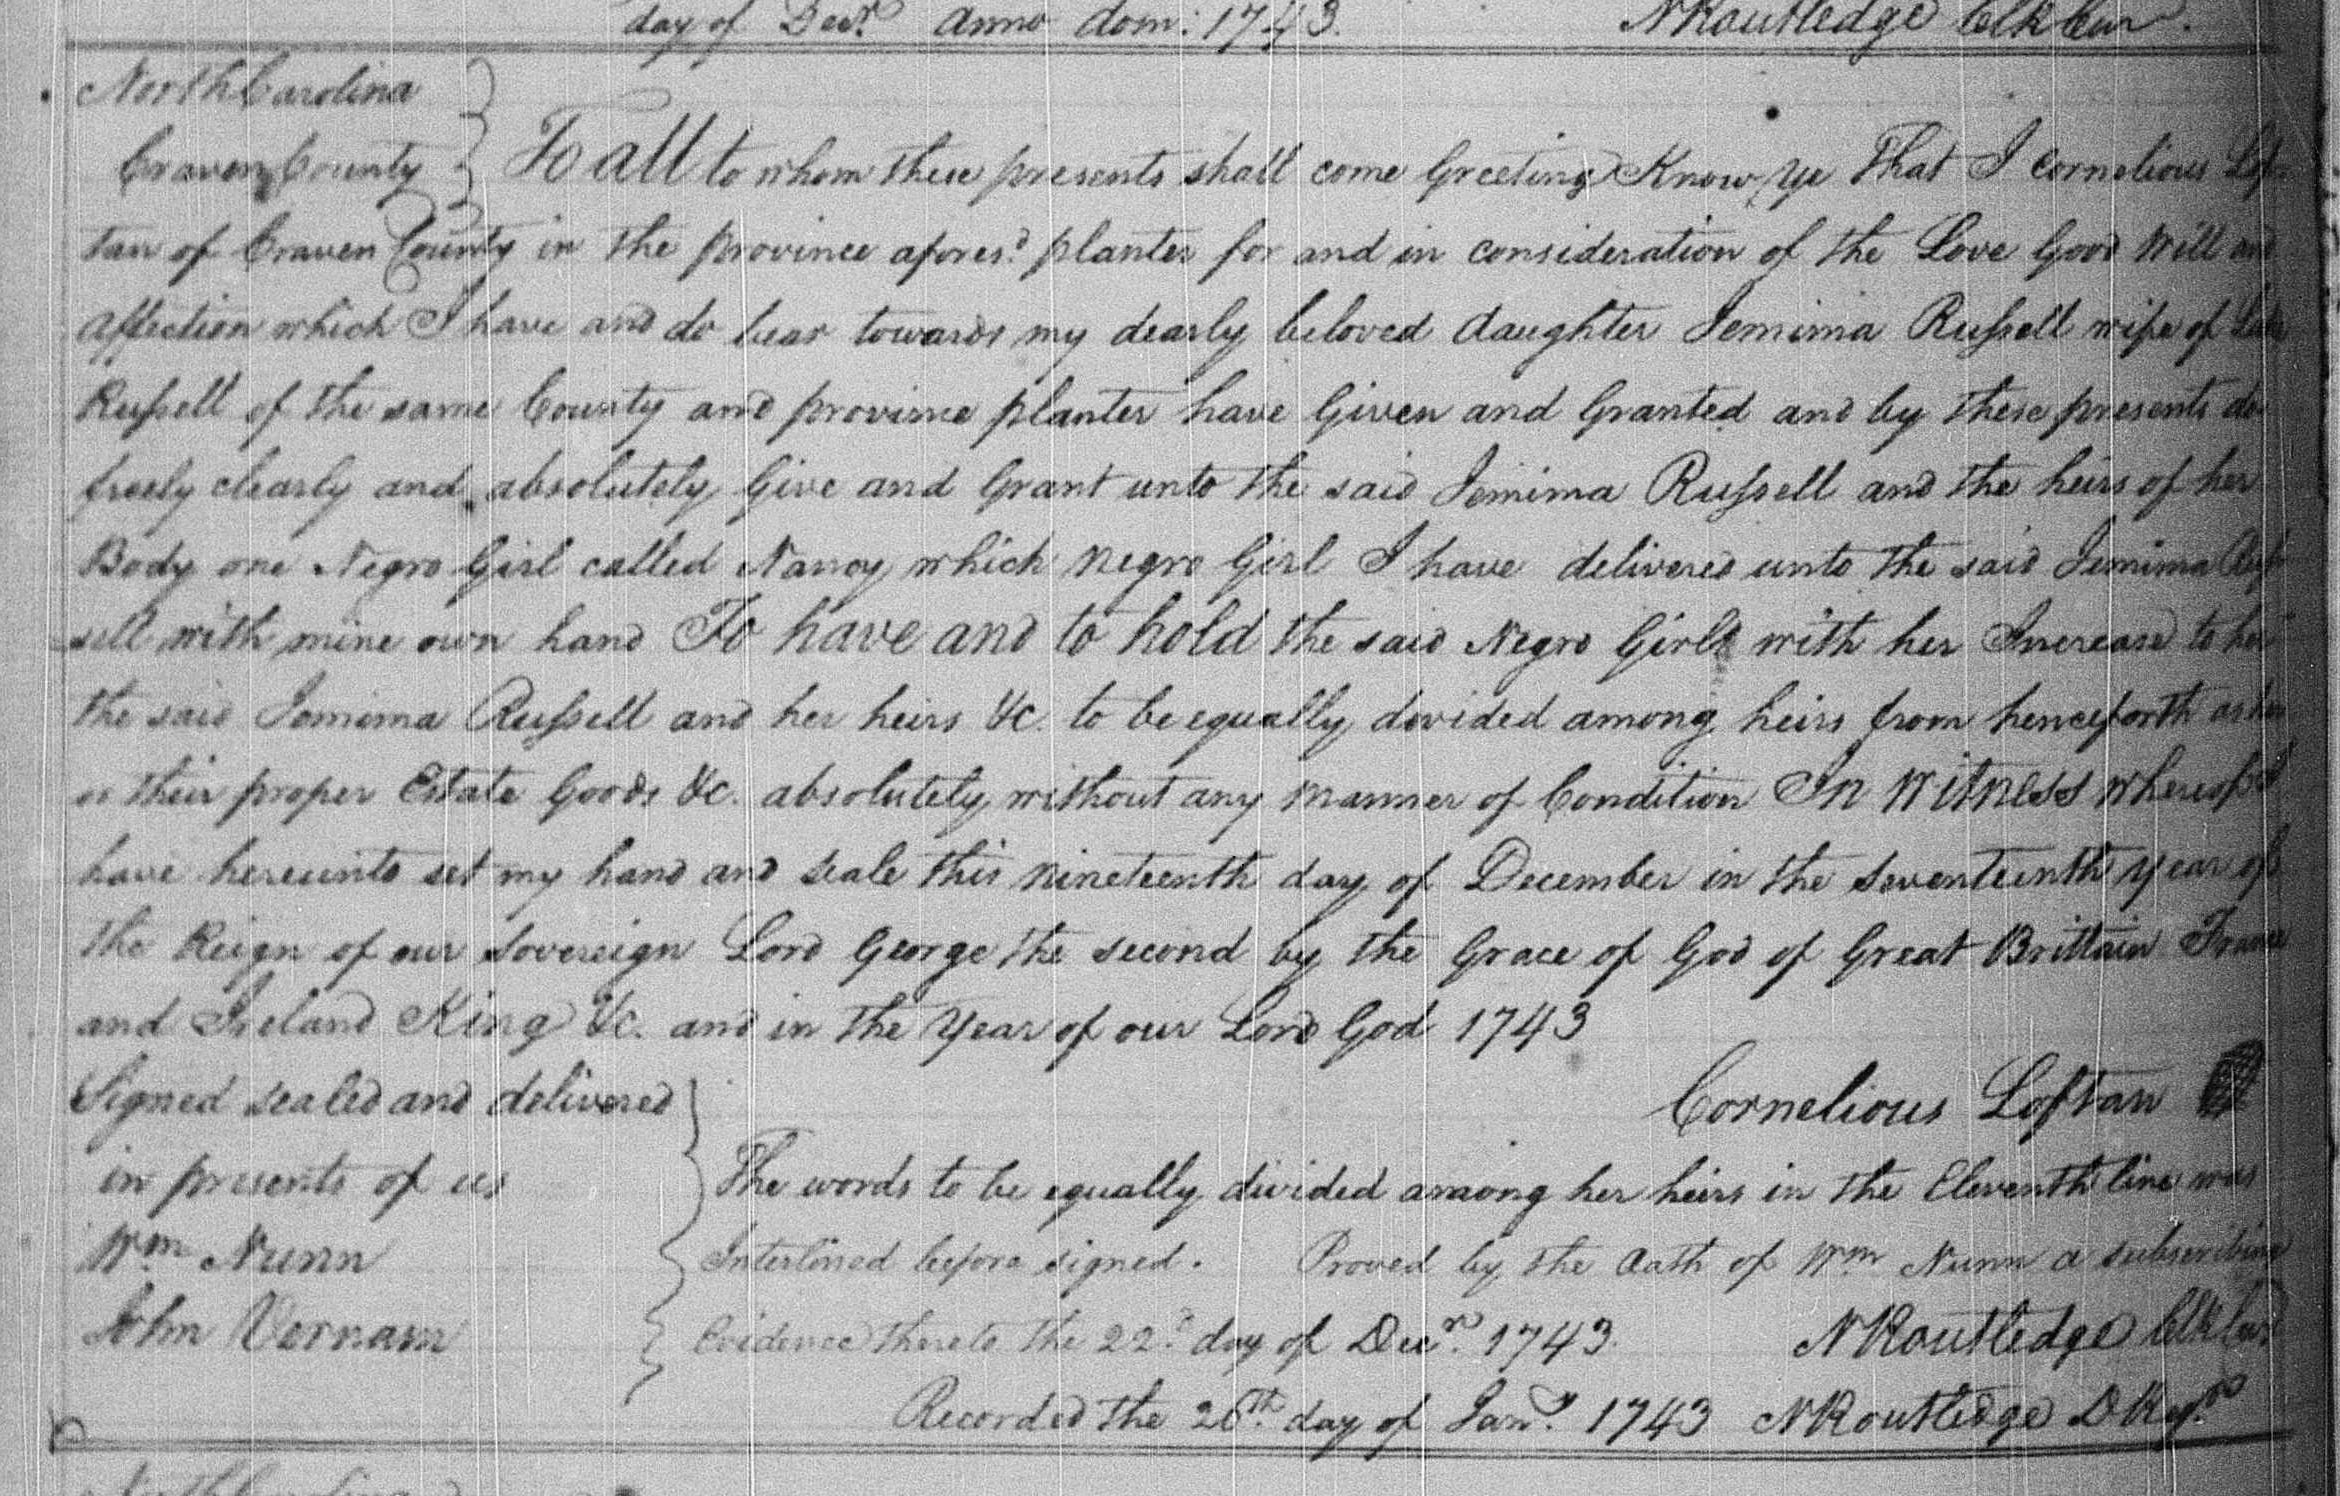 day of Decr. anno dom: 1743. NRoutledge Clk Cur.
North Carolina
Craven County } To all to whom these presents shall come Greeting Know Ye That I Cornelious Lof-
tan of Craven County in the province afores.d planter for and in consideration of the Love Good Will and
affection which I have and do bear towards my dearly beloved daughter Jemima Russell wife of
Russell of the same County and province planter have Given and Granted and by these presents do
freely clearly and absolutely Give and Grant unto the said Jemima Russell and the heirs of her
Body one Negro Girl called Nancy which Negro Girl I have delivered unto the said Jemima Rus
sell with mine own hand To have and to hold the said Negro Girl with her Increase to her
the said Jemima Russell and her heirs &c. to be equally devided among heirs from henceforth as her
or their proper Estate Goods &c. absolutely without any manner of Condition In Witness whereof I
have hereunto set my hand and seale this nineteenth day of December in the seventeenth year of
the Reign of our Sovereign Lord George the second by the Grace of God of Great Brittain France
and Ireland King &c. and in the Year of our Lord God 1743
Signed sealed and delivered } Cornelious Loftan
in presents of us } The words to be equally divided among her heirs in the Eleventh line was
Wm Nunn } Interlined before signed. Proved by the Oath of Wm Nunn a subscribing
John Vernam } Evidence thereto the 22d. day of Decr. 1743. NRoutledge Clk Cur
Recorded the 26th. day of Jany. 1743 NRoutledge D Regr.
North Carolina